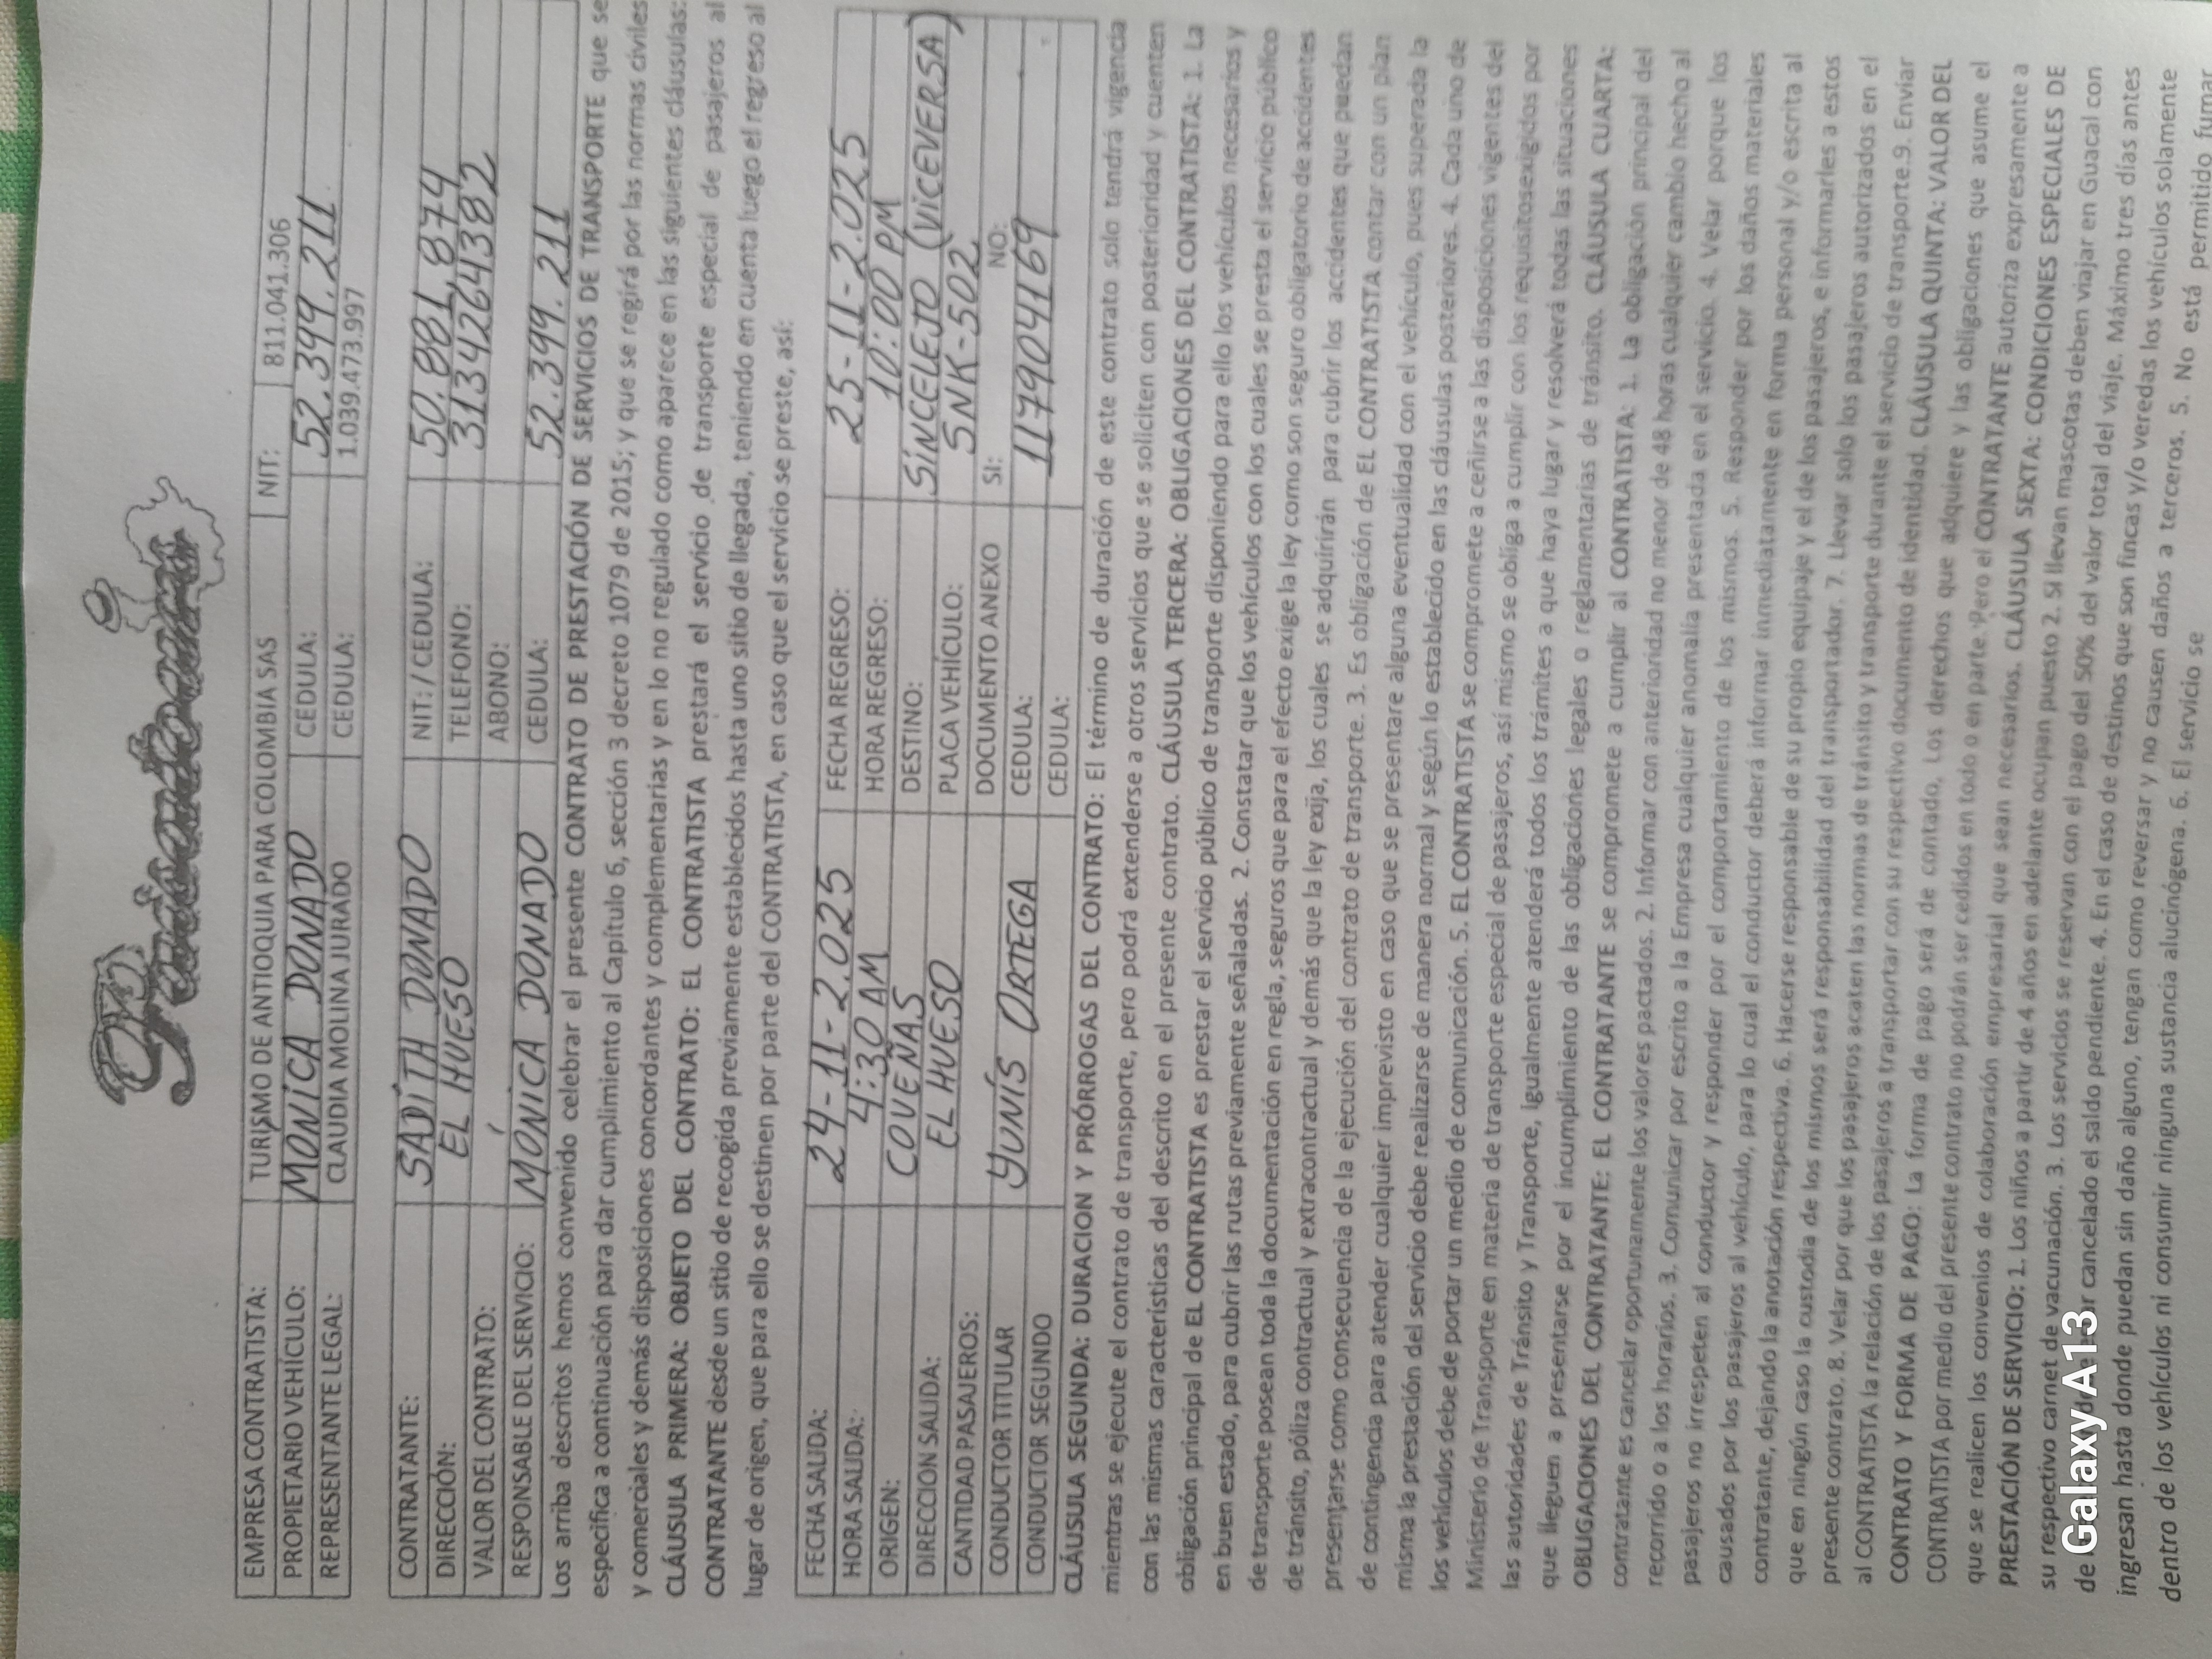 EMPRESA CONTRATISTA: TURISMO DE ANTIOQUIA PARA COLOMBIA SAS NIT: 811.041.306
PROPIETARIO VEHÍCULO: MONICA DONADO CEDULA: 52.399.211
REPRESENTANTE LEGAL: CLAUDIA MOLINA JURADO CEDULA: 1.039.473.997
CONTRATANTE: SADITH DONADO NIT: / CEDULA: 50.881.874
DIRECCIÓN: EL HUESO TELEFONO: 3134264382
VALOR DEL CONTRATO: ABONO:
RESPONSABLE DEL SERVICIO: MONICA DONADO CEDULA: 52.399.211
Los arriba descritos hemos convenido celebrar el presente CONTRATO DE PRESTACIÓN DE SERVICIOS DE TRANSPORTE que se
especifica a continuación para dar cumplimiento al Capítulo 6, sección 3 decreto 1079 de 2015; y que se regirá por las normas civiles
y comerciales y demás disposiciones concordantes y complementarias y en lo no regulado como aparece en las siguientes cláusulas:
CLÁUSULA PRIMERA: OBJETO DEL CONTRATO: EL CONTRATISTA prestará el servicio de transporte especial de pasajeros al
CONTRATANTE desde un sitio de recogida previamente establecidos hasta uno sitio de llegada, teniendo en cuenta luego el regreso al
lugar de origen, que para ello se destinen por parte del CONTRATISTA, en caso que el servicio se preste, así:
FECHA SALIDA: 24-11-2.025 FECHA REGRESO: 25-11-2.025
HORA SALIDA: 4:30 AM HORA REGRESO: 10:00 PM
ORIGEN: COVEÑAS DESTINO: SINCELEJO (VICEVERSA)
DIRECCION SALIDA: EL HUESO PLACA VEHÍCULO: SNK-502
CANTIDAD PASAJEROS: DOCUMENTO ANEXO SI: NO:
CONDUCTOR TITULAR YUNIS ORTEGA CEDULA: 117904169
CONDUCTOR SEGUNDO CEDULA:
CLÁUSULA SEGUNDA: DURACION Y PRÓRROGAS DEL CONTRATO: El término de duración de este contrato solo tendrá vigencia
mientras se ejecute el contrato de transporte, pero podrá extenderse a otros servicios que se soliciten con posterioridad y cuenten
con las mismas características del descrito en el presente contrato. CLÁUSULA TERCERA: OBLIGACIONES DEL CONTRATISTA: 1. La
obligación principal de EL CONTRATISTA es prestar el servicio público de transporte disponiendo para ello los vehículos necesarios y
en buen estado, para cubrir las rutas previamente señaladas. 2. Constatar que los vehículos con los cuales se presta el servicio público
de transporte posean toda la documentación en regla, seguros que para el efecto exige la ley como son seguro obligatorio de accidentes
de tránsito, póliza contractual y extracontractual y demás que la ley exija, los cuales se adquirirán para cubrir los accidentes que puedan
presentarse como consecuencia de la ejecución del contrato de transporte. 3. Es obligación de EL CONTRATISTA contar con un plan
de contingencia para atender cualquier imprevisto en caso que se presentare alguna eventualidad con el vehículo, pues superada la
misma la prestación del servicio debe realizarse de manera normal y según lo establecido en las cláusulas posteriores. 4. Cada uno de
los vehículos debe de portar un medio de comunicación. 5. EL CONTRATISTA se compromete a ceñirse a las disposiciones vigentes del
Ministerio de Transporte en materia de transporte especial de pasajeros, así mismo se obliga a cumplir con los requisitosexigidos por
las autoridades de Tránsito y Transporte, igualmente atenderá todos los trámites a que haya lugar y resolverá todas las situaciones
que lleguen a presentarse por el incumplimiento de las obligaciones legales o reglamentarias de tránsito. CLÁUSULA CUARTA:
OBLIGACIONES DEL CONTRATANTE: EL CONTRATANTE se compromete a cumplir al CONTRATISTA: 1. La obligación principal del
contratante es cancelar oportunamente los valores pactados. 2. Informar con anterioridad no menor de 48 horas cualquier cambio hecho al
recorrido o a los horarios. 3. Comunicar por escrito a la Empresa cualquier anomalía presentada en el servicio. 4. Velar porque los
pasajeros no irrespeten al conductor y responder por el comportamiento de los mismos. 5. Responder por los daños materiales
causados por los pasajeros al vehículo, para lo cual el conductor deberá informar inmediatamente en forma personal y/o escrita al
contratante, dejando la anotación respectiva. 6. Hacerse responsable de su propio equipaje y el de los pasajeros, e informarles a estos
que en ningún caso la custodia de los mismos será responsabilidad del transportador. 7. Llevar solo los pasajeros autorizados en el
presente contrato. 8. Velar por que los pasajeros acaten las normas de tránsito y transporte durante el servicio de transporte.9. Enviar
al CONTRATISTA la relación de los pasajeros a transportar con su respectivo documento de identidad. CLÁUSULA QUINTA: VALOR DEL
CONTRATO Y FORMA DE PAGO: La forma de pago será de contado. Los derechos que adquiere y las obligaciones que asume el
CONTRATISTA por medio del presente contrato no podrán ser cedidos en todo o en parte. Pero el CONTRATANTE autoriza expresamente a
que se realicen los convenios de colaboración empresarial que sean necesarios. CLÁUSULA SEXTA: CONDICIONES ESPECIALES DE
PRESTACIÓN DE SERVICIO: 1. Los niños a partir de 4 años en adelante ocupan puesto 2. Si llevan mascotas deben viajar en Guacal con
su respectivo carnet de vacunación. 3. Los servicios se reservan con el pago del 50% del valor total del viaje. Máximo tres días antes
de cancelado el saldo pendiente. 4. En el caso de destinos que son fincas y/o veredas los vehículos solamente
ingresan hasta donde puedan sin daño alguno, tengan como reversar y no causen daños a terceros. 5. No está permitido fumar
dentro de los vehículos ni consumir ninguna sustancia alucinógena. 6. El servicio se
Galaxy A13